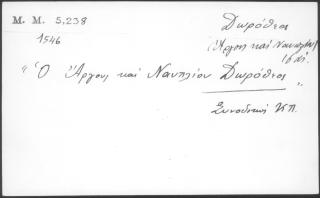 M. M. 5.238
Δωρόθεος
1546
(Ἄργους καὶ Ναυπλίου)
16 αἰ.
"Ὁ Ἄργους καὶ Ναυπλίου Δωρόθεος"
Συνοδικὴ Κ.Π.